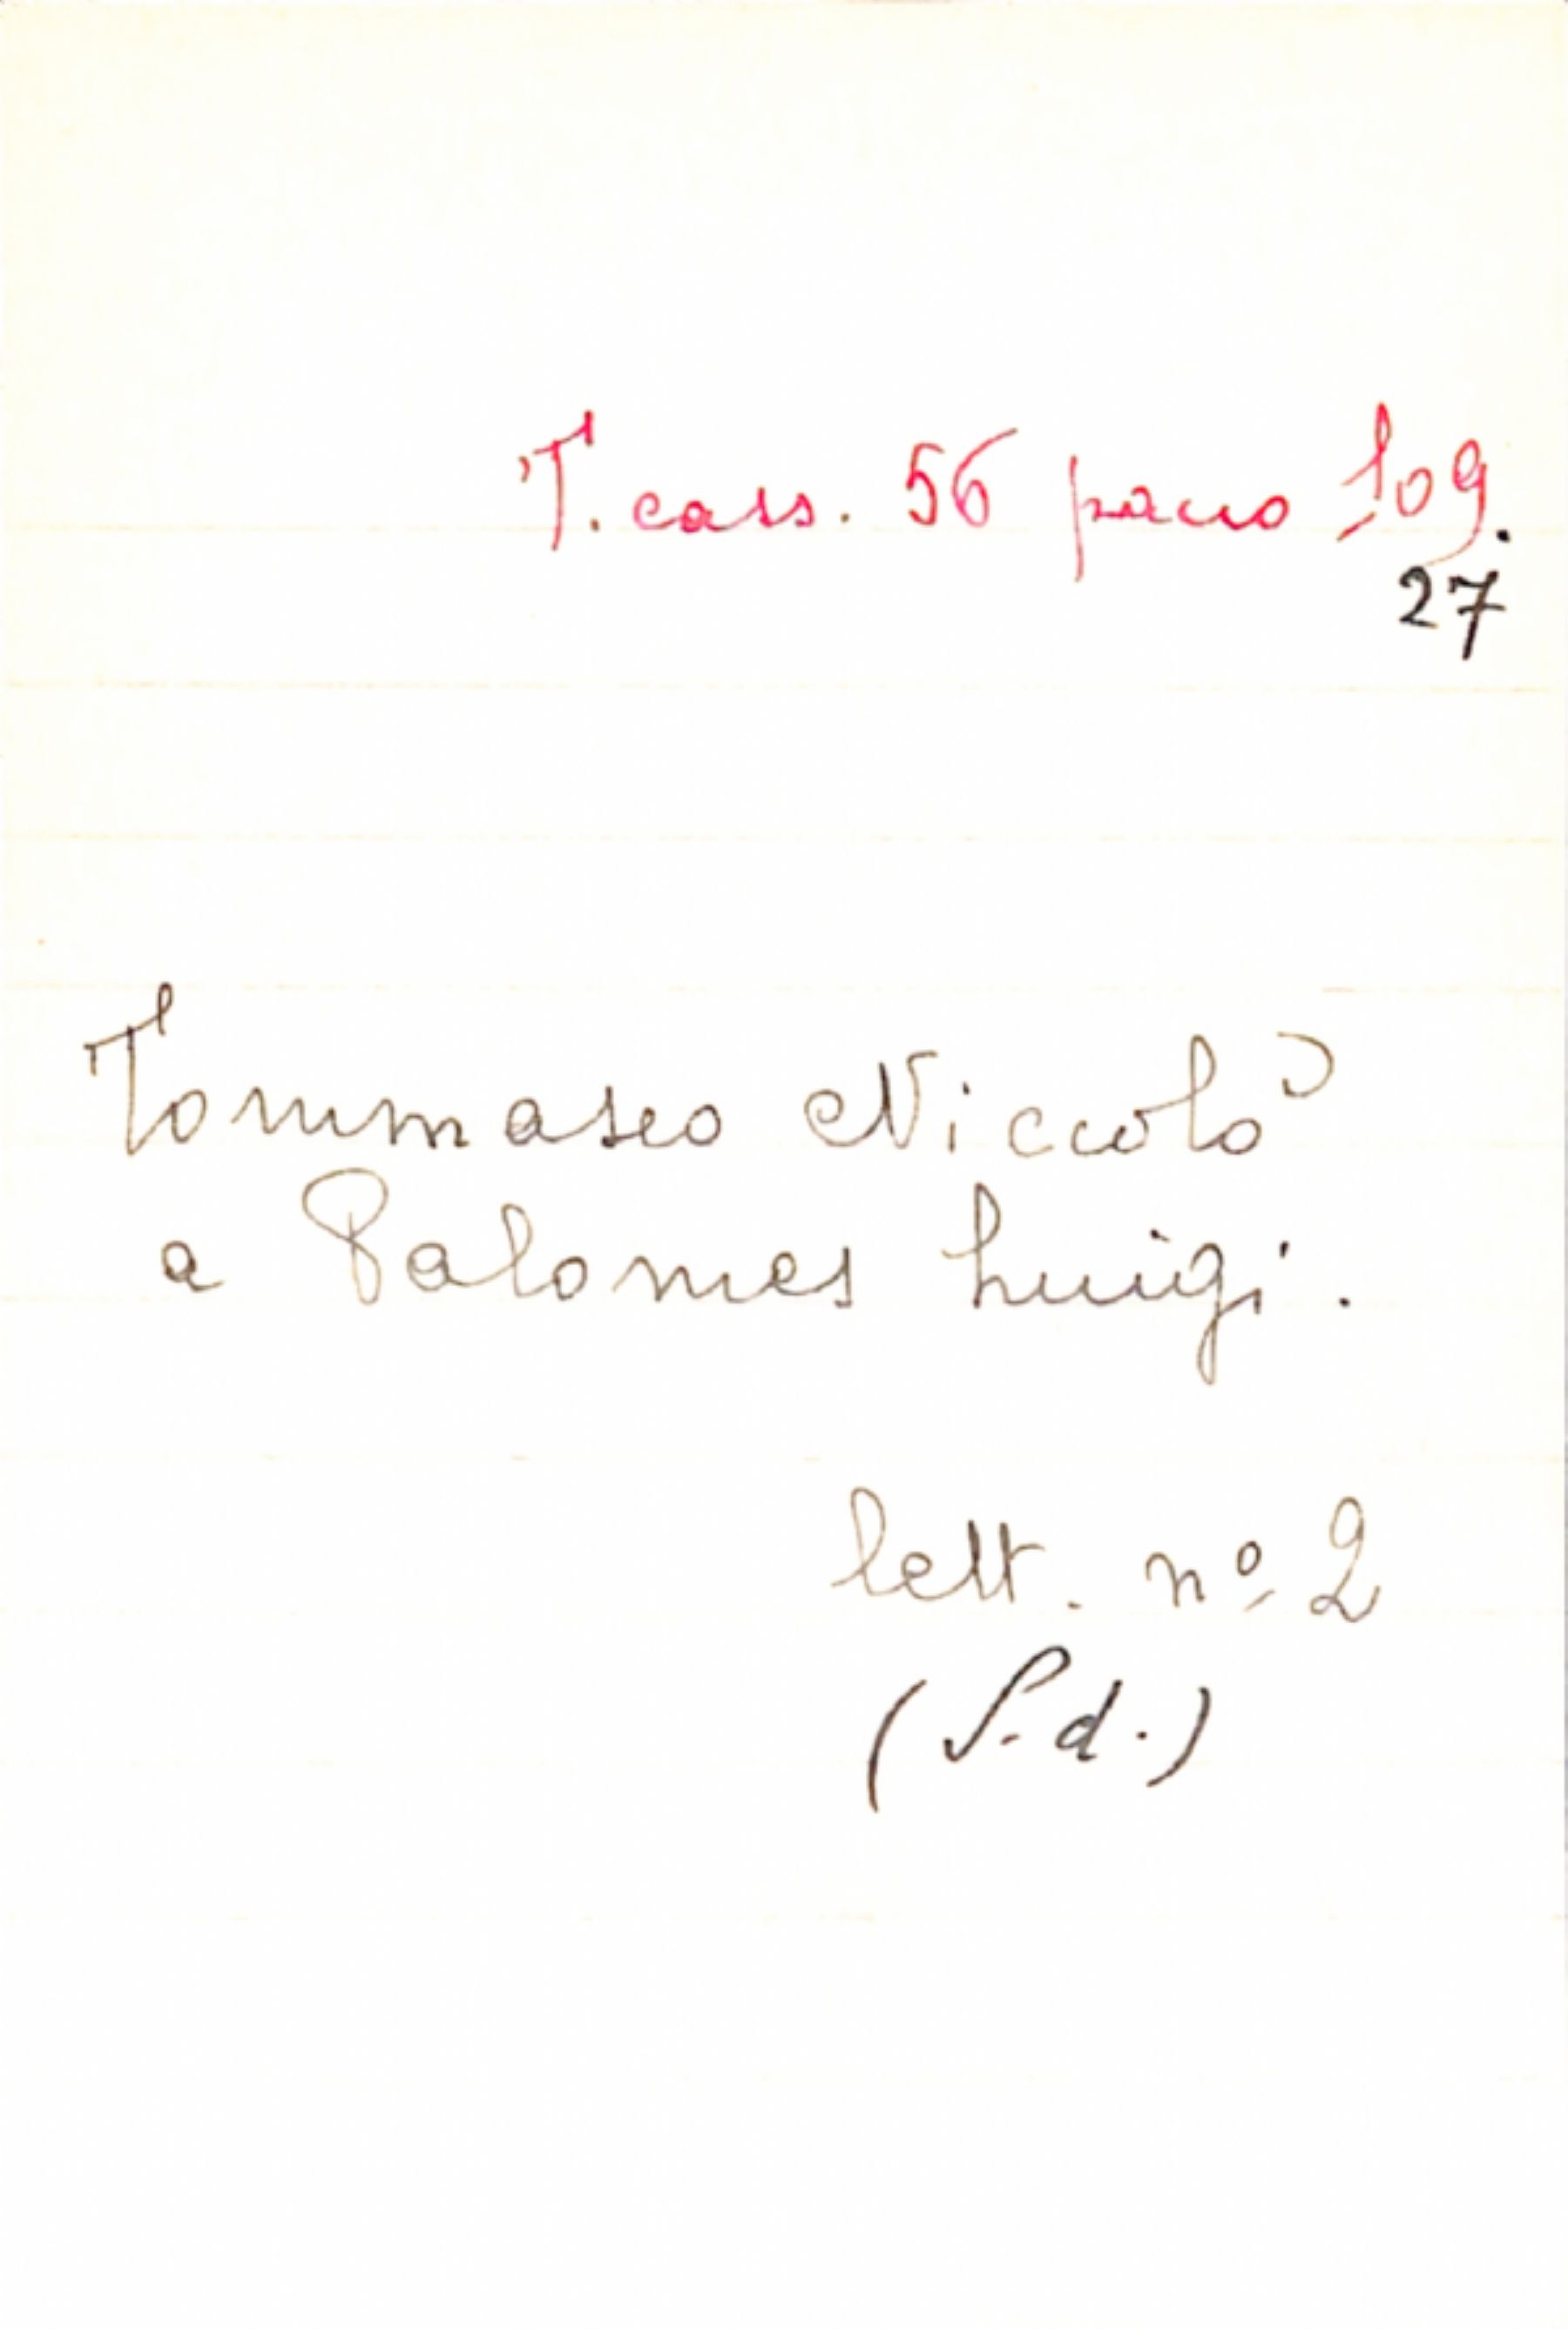 T. cass. 56 pacco 109.
27
Tommaseo Niccolò
a Palomes Luigi.
lett. nº 2
(S. d.)